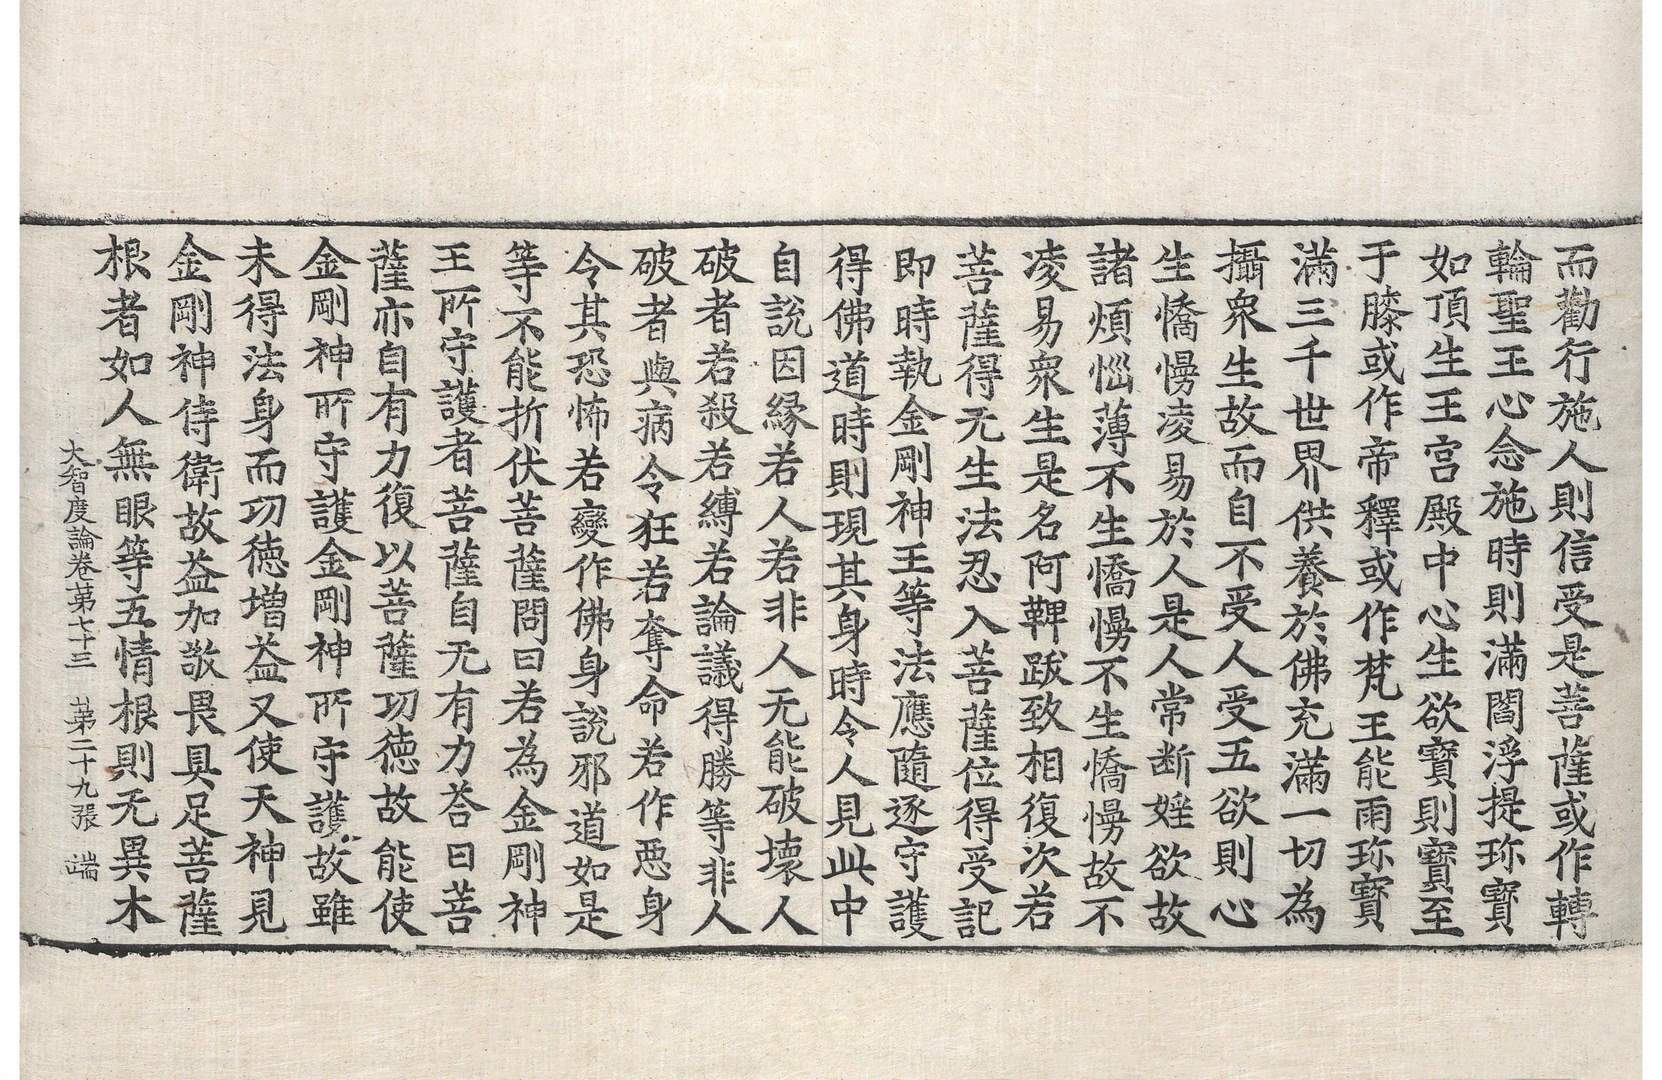 而勸行施人則信受是菩薩或作轉
輪聖王心念施時則滿閻浮提珎寶
如頂生王宮殿中心生欲寶則寶至
于膝或作帝釋或作梵王能雨珎寶
滿三千世界供養於佛充滿一切為
攝衆生故而自不受人受五欲則心
生憍慢凌易於人是人常断婬欲故
諸煩惱薄不生憍慢不生憍慢故不
凌易衆生是名阿鞞跋致相復次若
菩薩得无生法忍入菩薩位得受記
即時執金剛神王等法應隨逐守護
得佛道時則現其身時令人見此中
自說因緣若人若非人无能破壞人
破者若殺若縛若論議得勝等非人
破者與病令狂若奪命若作惡身
令其恐怖若變作佛身說邪道如是
等不能折伏菩薩問曰若為金剛神
王所守護者菩薩自无有力荅曰菩
薩亦自有力復以菩薩功德故能使
金剛神所守護金剛神所守護故雖
未得法身而功德増益又使天神見
金剛神侍衛故益加敬畏具足菩薩
根者如人無眼等五情根則无異木
大智度論卷第七十三　第二十九張　端